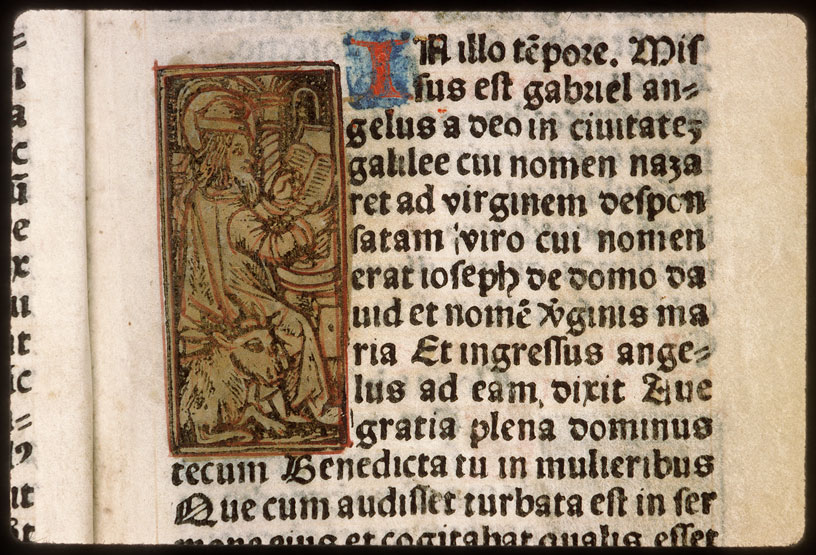 IN illo tēpore. Mis
sus est gabriel an=
gelus a deo in ciuitatez
galilee cui nomen naza
ret ad virginem despon
satam viro cui nomen
erat ioseph de domo da
uid et nomē v̓ginis ma
ria Et ingressus ange=
lus ad eam, dixit Aue
gratia plena dominus
tecum Benedicta tu in mulieribus
Que cum audisset turbata est in ser
mone eius et cogitabat qualis esset